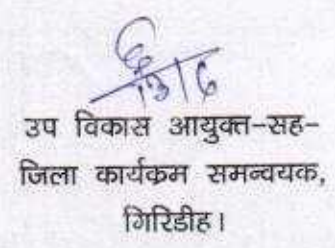 13/6
उप विकास आयुक्त-सह-
जिला कार्यक्रम समन्वयक,
गिरिडीह।